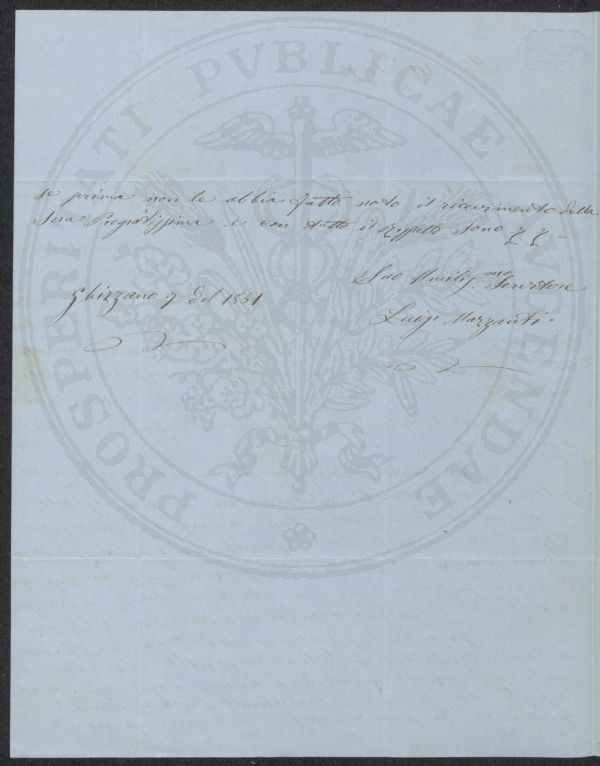 se prima non le abbia fatto noto il ricevimento della
Sua Pregiatissima e con tutto il rispetto sono
Suo Umilis.mo Servitore
Ghizzano 7 del 1851
Luigi Marzanti.
PROSPERITATI PVBLICAE AVGENDAE